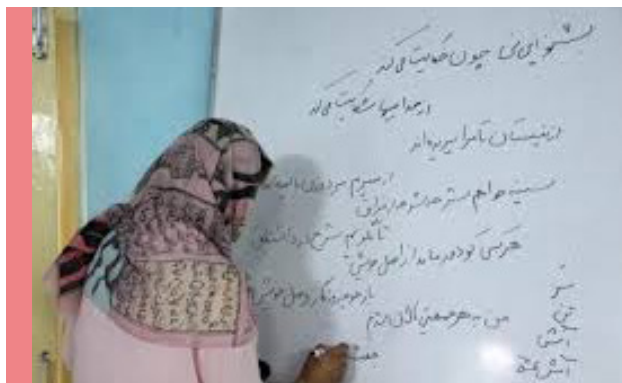 بشنو این نی چون حکایت می کند
از جداییها شکایت می کند
از نیستان تا مرا ببریده اند
از نفیرم مرد و زن نالیده
سینه خواهم شرحه شرحه از فراق
تا بگویم شرح درد اشتیاق
هر کسی کو دور ماند از اصل خویش
باز جوید روزگار وصل خویش
من به هر جمعیتی نالان شدم
جفت
سر
نی
آتش
آتش عشق